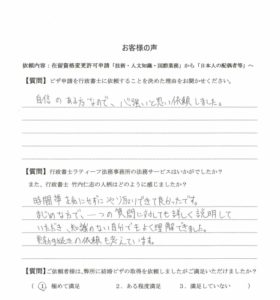 お客様の声
依頼内容：在留資格変更許可申請「技術・人文知識・国際業務」から「日本人の配偶者等」へ
【質問】ビザ申請を行政書士に依頼することを決めた理由をお聞かせください。
自信のある方なので、心強いと思い依頼しました。
【質問】行政書士ラティーフ法務事務所の法務サービスはいかがでしたか？
また、行政書士 竹内仁志の人柄はどのように感じましたか？
時間等を気にせずにやり取りできて良かったです。
まじめな方で、一つの質問に対しても詳しく説明して
いただき、知識のない自分でもよく理解できました。
の依頼も考えています。
【質問】ご依頼者様は、弊所に結婚ビザの取得を依頼しましたがご満足いただけましたか？
1、極めて満足 2、ある程度満足 3、満足していない